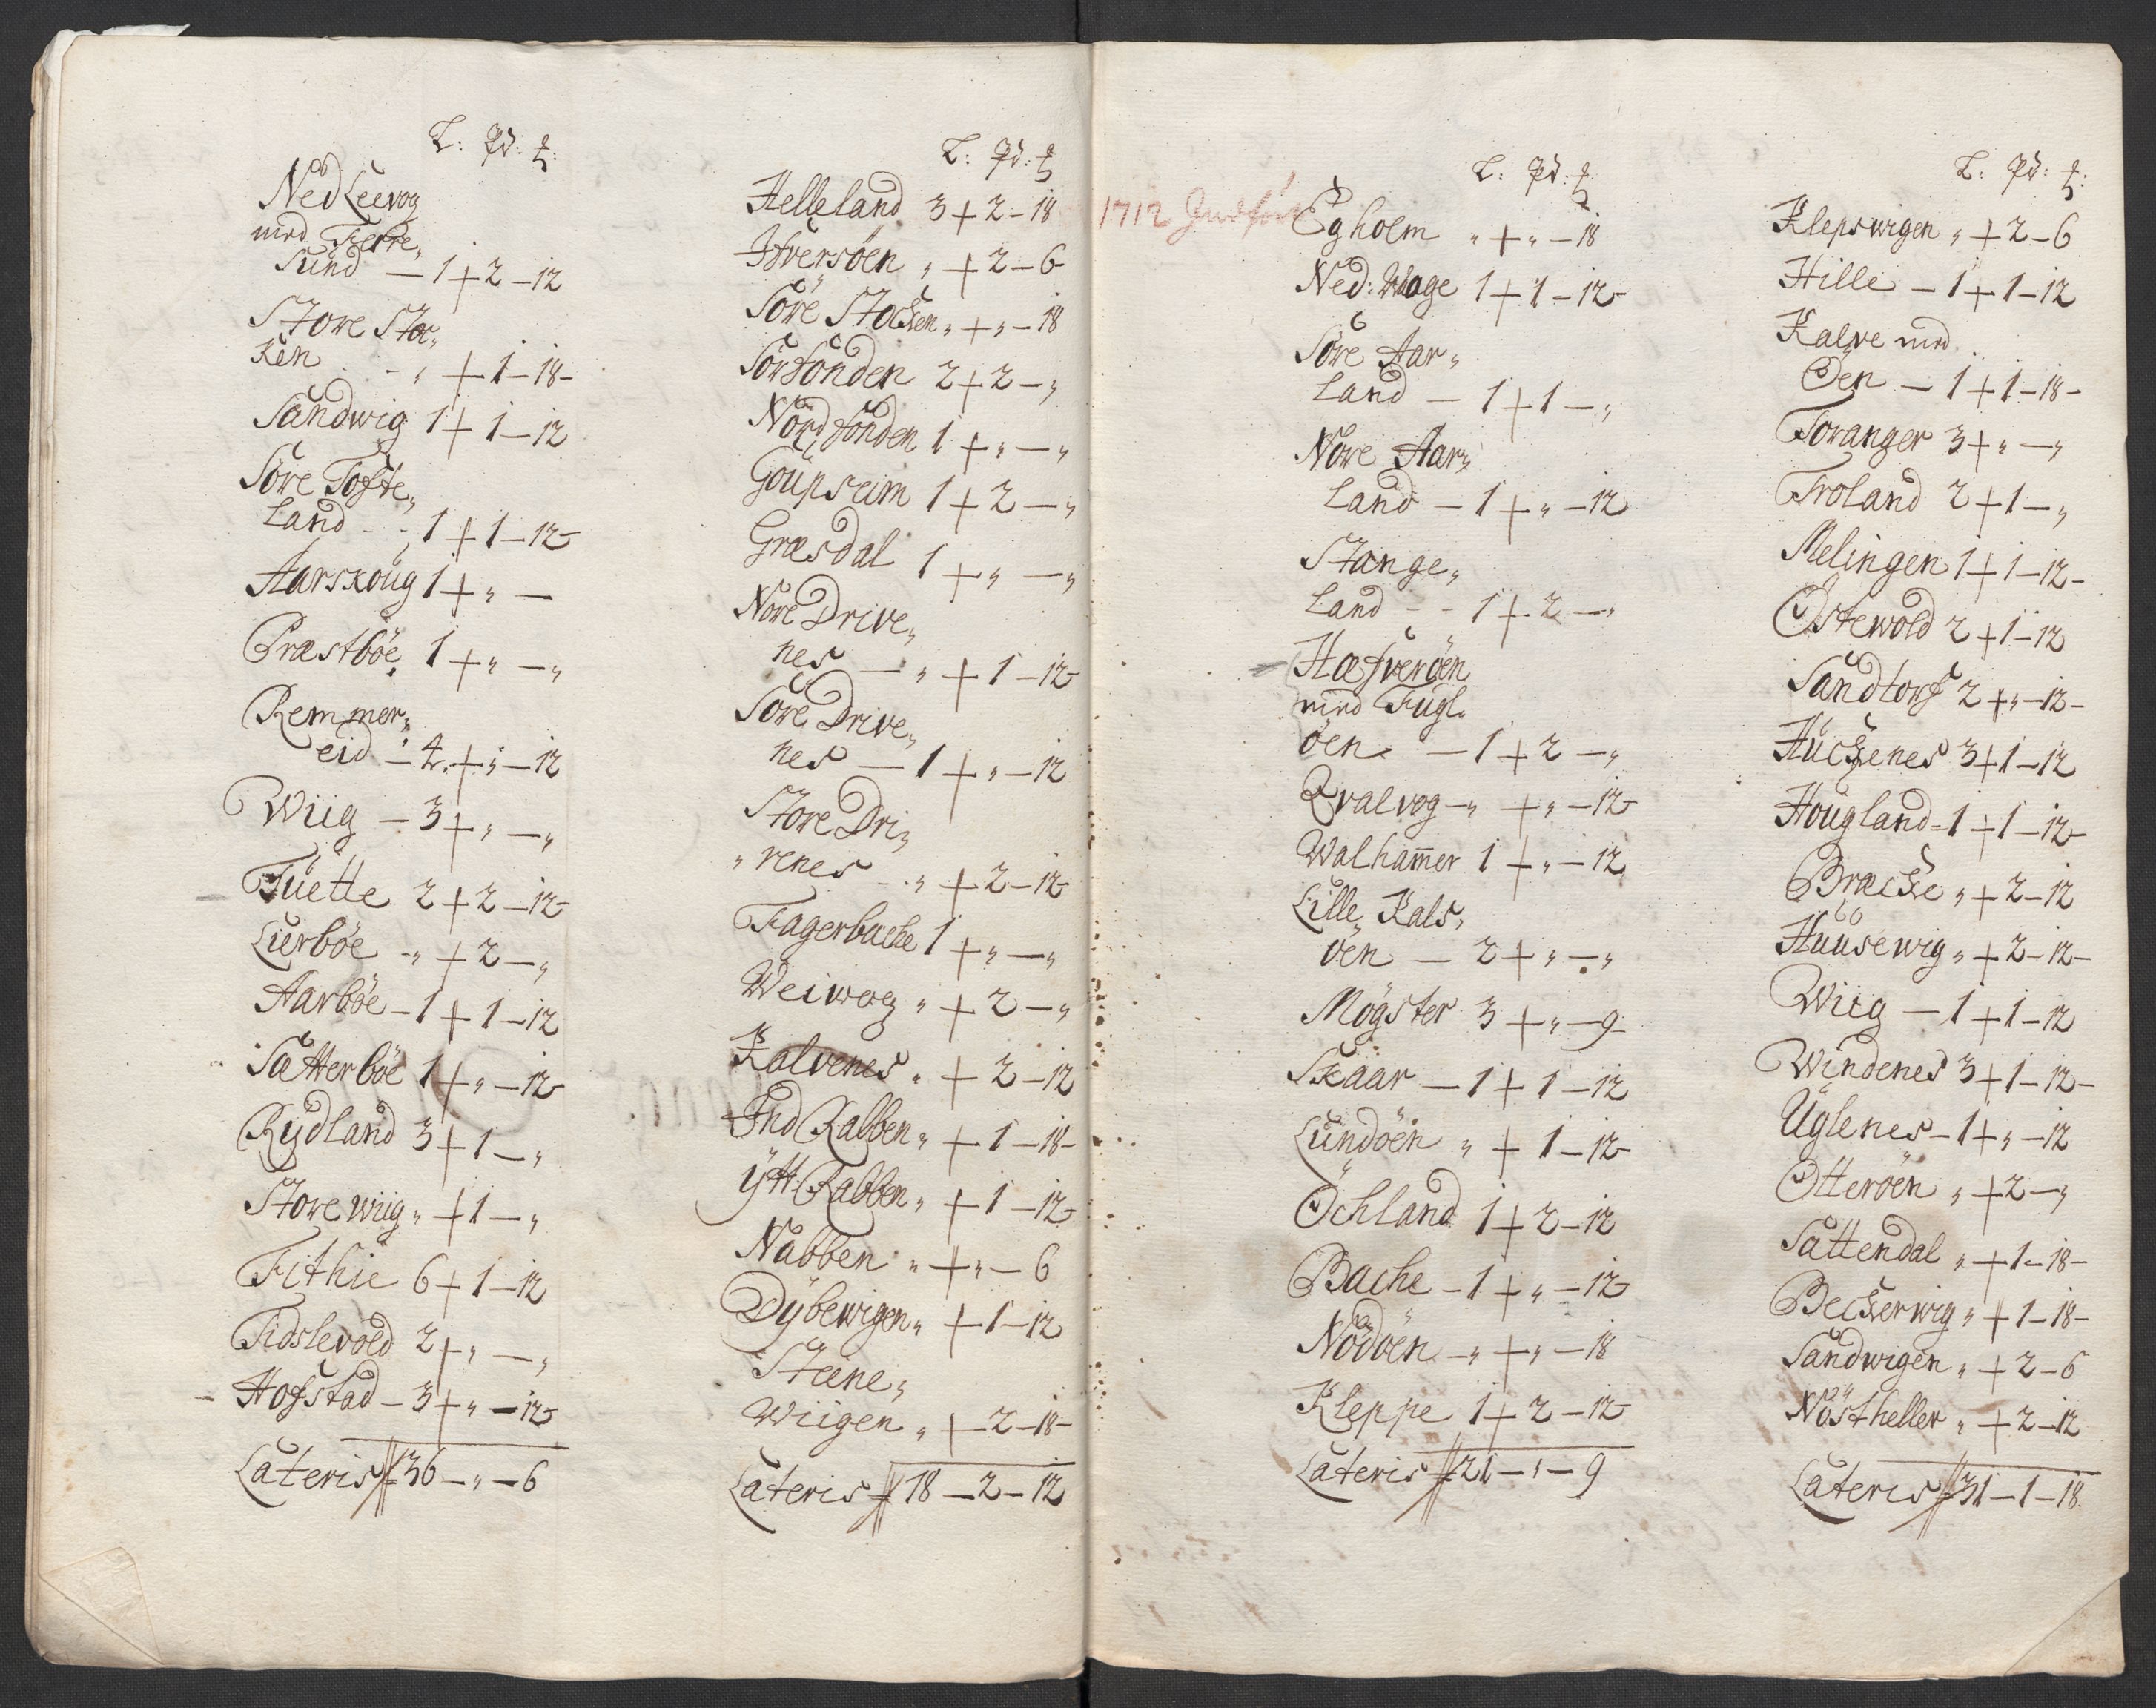 L: Pd: ℔:
Ned Leevog
med Fierre„
Sund — 1 + 2 – 12
Store Sto„
ken - „ + 1 – 18 –
Sandwig 1 + 1 – 12
Söre Tofte„
Land - - 1 + 1 – 12
Aarskoug 1 + „ –
Præstböe 1 + „ – „
Remmer„
eid – 4 + „ – 12
Wiig – 3 + „ – „
Tüette 2 + 2 – 12
Lierböe „ + 2 – „
Aarböe – 1 + 1 – 12
Sætterböe 1 + „ – 12
Rydland 3 + 1 – „
Store wiig „ + 1 – „
Fithie 6 + 1 – 12
Tidslevold 2 + „ – „
Hofstad – 3 + „ – 12
Lateris 36 – „ – 6
L: Pd: ℔
Helleland 3 + 2 – 18
Ifversöen „ + 2 – 6
Söre Stocken „ + „ – 18
Sörfonden 2 + 2 – „
Nordfonden 1 + „ – „
Goupseim 1 + 2 – „
Græsdal 1 + „ – „
Nore Drive„
nes – „ + 1 – 12
Söre Drive„
nes – 1 + „ – 12
Store Dri„
„venes - „ + 2 – 12
Fagerbache 1 + „ – „
Weiwog „ + 2 – „
Kalvenes „ + 2 – 12
Ind Rabben „ + 1 – 18 –
ÿtt: Rabben „ + 1 – 12
Nabben „ + „ – 6
Dÿbewigen „ + 1 – 12
Steene„
Wiigen „ + 2 – 18 –
Lateris 18 – 2 – 12
1712
L: Pd: ℔
Egholm „ + „ – 18
Ned: Waage 1 + 1 – 12
Söre Aar„
Land – 1 + 1 – „
Nore Aar„
Land – 1 + „ – 12
Stange„
Land - - 1 + 2 – „
Hæfveröen
med Fugl„
öen – 1 + 2 – „
Qvalvog – „ + „ – 12
Walham̄er 1 + „ – 12
Lille Kals„
öen – 2 + „ – „
Mögster 3 + „ – 9
Skaar – 1 + 1 – 12
Lundöen „ + 1 – 12
Öchland 1 + 2 – 12
Bache – 1 + „ – 12
Nödöen – „ + „ – 18
Kleppe 1 + 2 – 12
Lateris 21 – „ – 9
L: Pd: ℔:
Klepswigen „ + 2 – 6
Hille – 1 + 1 – 12
Kalve med
Öen – 1 + 1 – 18 –
Toranger 3 + „ – „
Troland 2 + 1 – „
Melingen 1 + 1 – 12 –
Östewold 2 + 1 – 12
Sandtorf 2 + „ – 12 –
Huckenes 3 + 1 – 12
Hougland – 1 + 1 – 12
Bræcke „ + 2 – 12
Huusewig „ + 2 – 12 –
Wiig – 1 + 1 – 12
Windenes 3 + 1 – 12 –
Uglenes – 1 + „ – 12
Otteröen „ + 2 – „
Sattendal „ + 1 – 18 –
Beckerwig „ + 1 – 18 –
Sandwigen „ + 2 – 6
Nöstheller „ + 2 – 12
Lateris 31 – 1 – 18